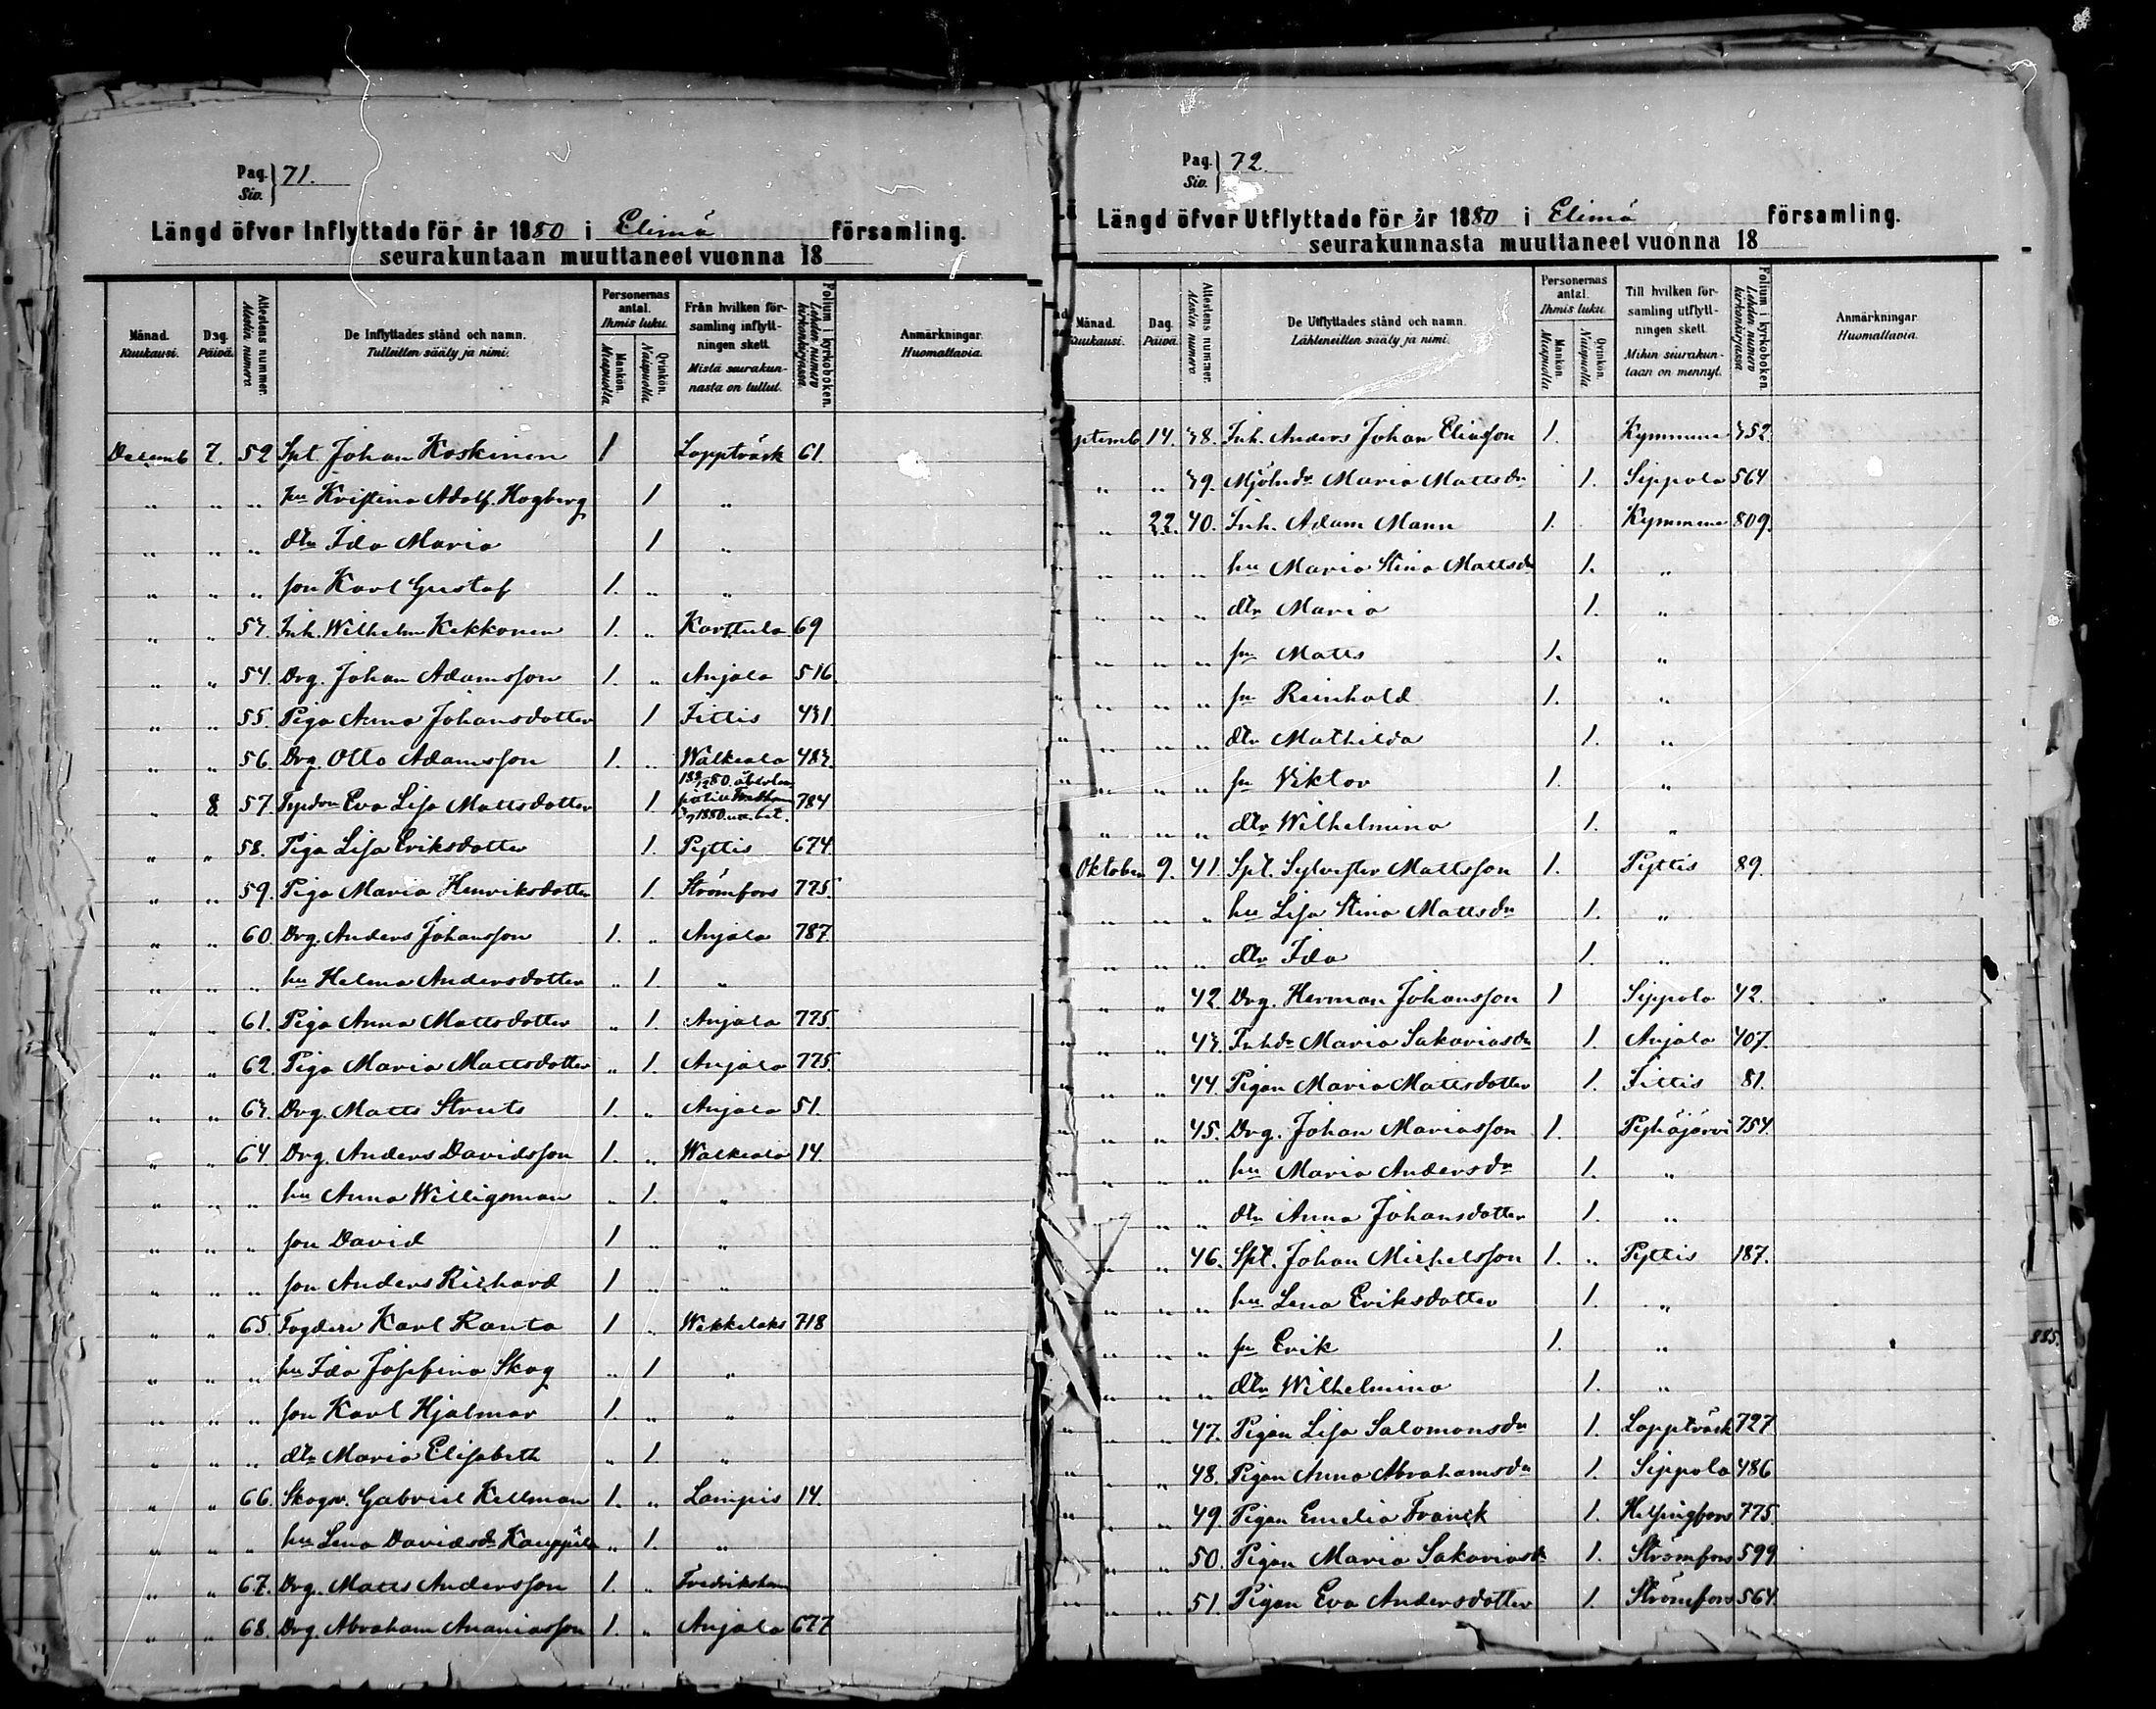 Pag. Siv. 71.
Längd öfver Inflyttade för år 1880 i Elimä församling.
seurakuntaan muuttaneet vuonna 18
Månad. Kuukausi. Dag. Päivä. Attestens nummer. Alestin numero De Inflyttades stånd och namn. Tulleitten sääly ja nimi. Personernas antal. Ihmis luku. Mankön. Miespuolia Qvinkön. Naispuolia Från hvilken församling inflyttningen skett. Mistä seurakunnasta on tullut. Folium i kyrkoboken. Lehden numero kirkonkirjassa Anmärkningar. Huomattavia.
Decemb 7. 52 Spt Johan Koskinen 1 Lappträsk 61.
" " " hu Kristina Adolf. Hogberg 1 "
" " " dtr Ida Maria 1 "
" " " son Karl Gustaf 1. " "
" " 53. Inh. Wilhelm Kekkonen 1. " Karttula 69
" " 54. Drg. Johan Adamsson 1. " Anjala 516.
" " 55. Piga Anna Johansdotter 1 Iittis 431.
" " 56. Drg. Otto Adamsson 1. " Walkeala 483.
" 8. 57. Eva Lisa Mattsdotter 1 784
" " 58. Piga Lisa Eriksdotter 1. Pyttis 674.
" " 59. Piga Maria Henriksdotter 1. Strömfors 775.
" " 60 Drg. Anders Johansson 1. " Anjala 787.
" " " hu Helena Andersdotter " 1. "
" " 61. Piga Anna Mattsdotter " 1. Anjala 775.
" " 62. Piga Maria Mattsdotter " 1. Anjala 775.
" " 63. Drg. Matts Struts 1. " Anjala 51.
" " 64. Drg. Anders Davidsson 1. " Walkeala 14.
" " " hu Anna Willigsman " 1. "
" " " son David 1 " "
" " " son Anders Richard 1 " "
" " 65. Karl Ranta 1 " Wekkelaks 718
" " " hu Ida Josefina Skog " 1 "
" " " son Karl Hjalmar 1. " "
" " " dtr Maria Elisabeth " 1. "
" " 66. Skogv. Gabriel Kellman 1. " Lampis 14.
" " " hu Lena Davidsdr " 1. "
" " 67. Drg. Matts Andersson 1. " Fredrikshamn
" " 68. Drg. Abraham Ananiasson 1. " Anjala 677
Pag. Siv. 72.
Längd öfver Utflyttade för år 1880 i Elimä församling.
seurakunnasta muuttaneet vuonna 18
Månad. Kuukausi. Dag. Päivä. Attestens nummer. Alestin numero De Utflyttades stånd och namn. Lähteneitten sääly ja nimi. Personernas antal. Ihmis luku. Mankön. Miespuolia Qvinkön. Naispuolia Till hvilken församling utflyttningen skett. Mihin seurakuntaan on mennyt. Folium i kyrkoboken. Lehden numero kirkonkirjassa Anmärkningar. Huomattavia.
ptemb 14. 38. Inh. Anders Johan Eliasson 1. Kymmene 352.
" " 39. Mjölndr Maria Mattsdr 1. Sippola 564.
" 22. 40. Inh. Adam Mann 1. Kymmene 809.
" " " hu Maria Stina Mattsdr 1. "
" " " dtr Maria 1. "
" " " sn Matts 1. "
" " " sn Reinhold 1. "
" " " dtr Mathilda 1. "
" " " sn Viktor 1. "
" " " dtr Wilhelmina 1. "
Oktober 9. 41. Spt. Sylvester Mattsson 1. Pyttis 89.
" " " hu Lisa Stina Mattsdr 1. "
" " " dtr Ida 1. "
" " 42. Drg. Herman Johansson 1 Sippola 42.
" " 43. Inhdr Maria Sakariasdr 1. Anjala 407.
" " 44. Pigan Maria Mattsdotter 1. Iittis 81.
" " 45. Drg. Johan Mariasson 1. Pyhäjärvi 754.
" " " hu Maria Andersdr 1. "
" " " dtr Anna Johansdotter 1. "
" " 46. Spt. Johan Michelsson 1. " Pyttis 187.
" " " hu Lena Eriksdotter 1. "
" " " sn Erik 1. "
" " " dtr Wilhelmina 1. "
" " 47. Pigan Lisa Salomonsdr 1. Lappträsk 727
" " 48. Pigan Anna Abrahamsdr 1. Sippola 486
" " 49. Pigan Emelia Franck 1. Helsingfors 775.
" " 50. Pigan Maria Sakariasdr 1. Strömfors 599
" " 51. Pigan Eva Andersdotter 1. Strömfors 564.
885.